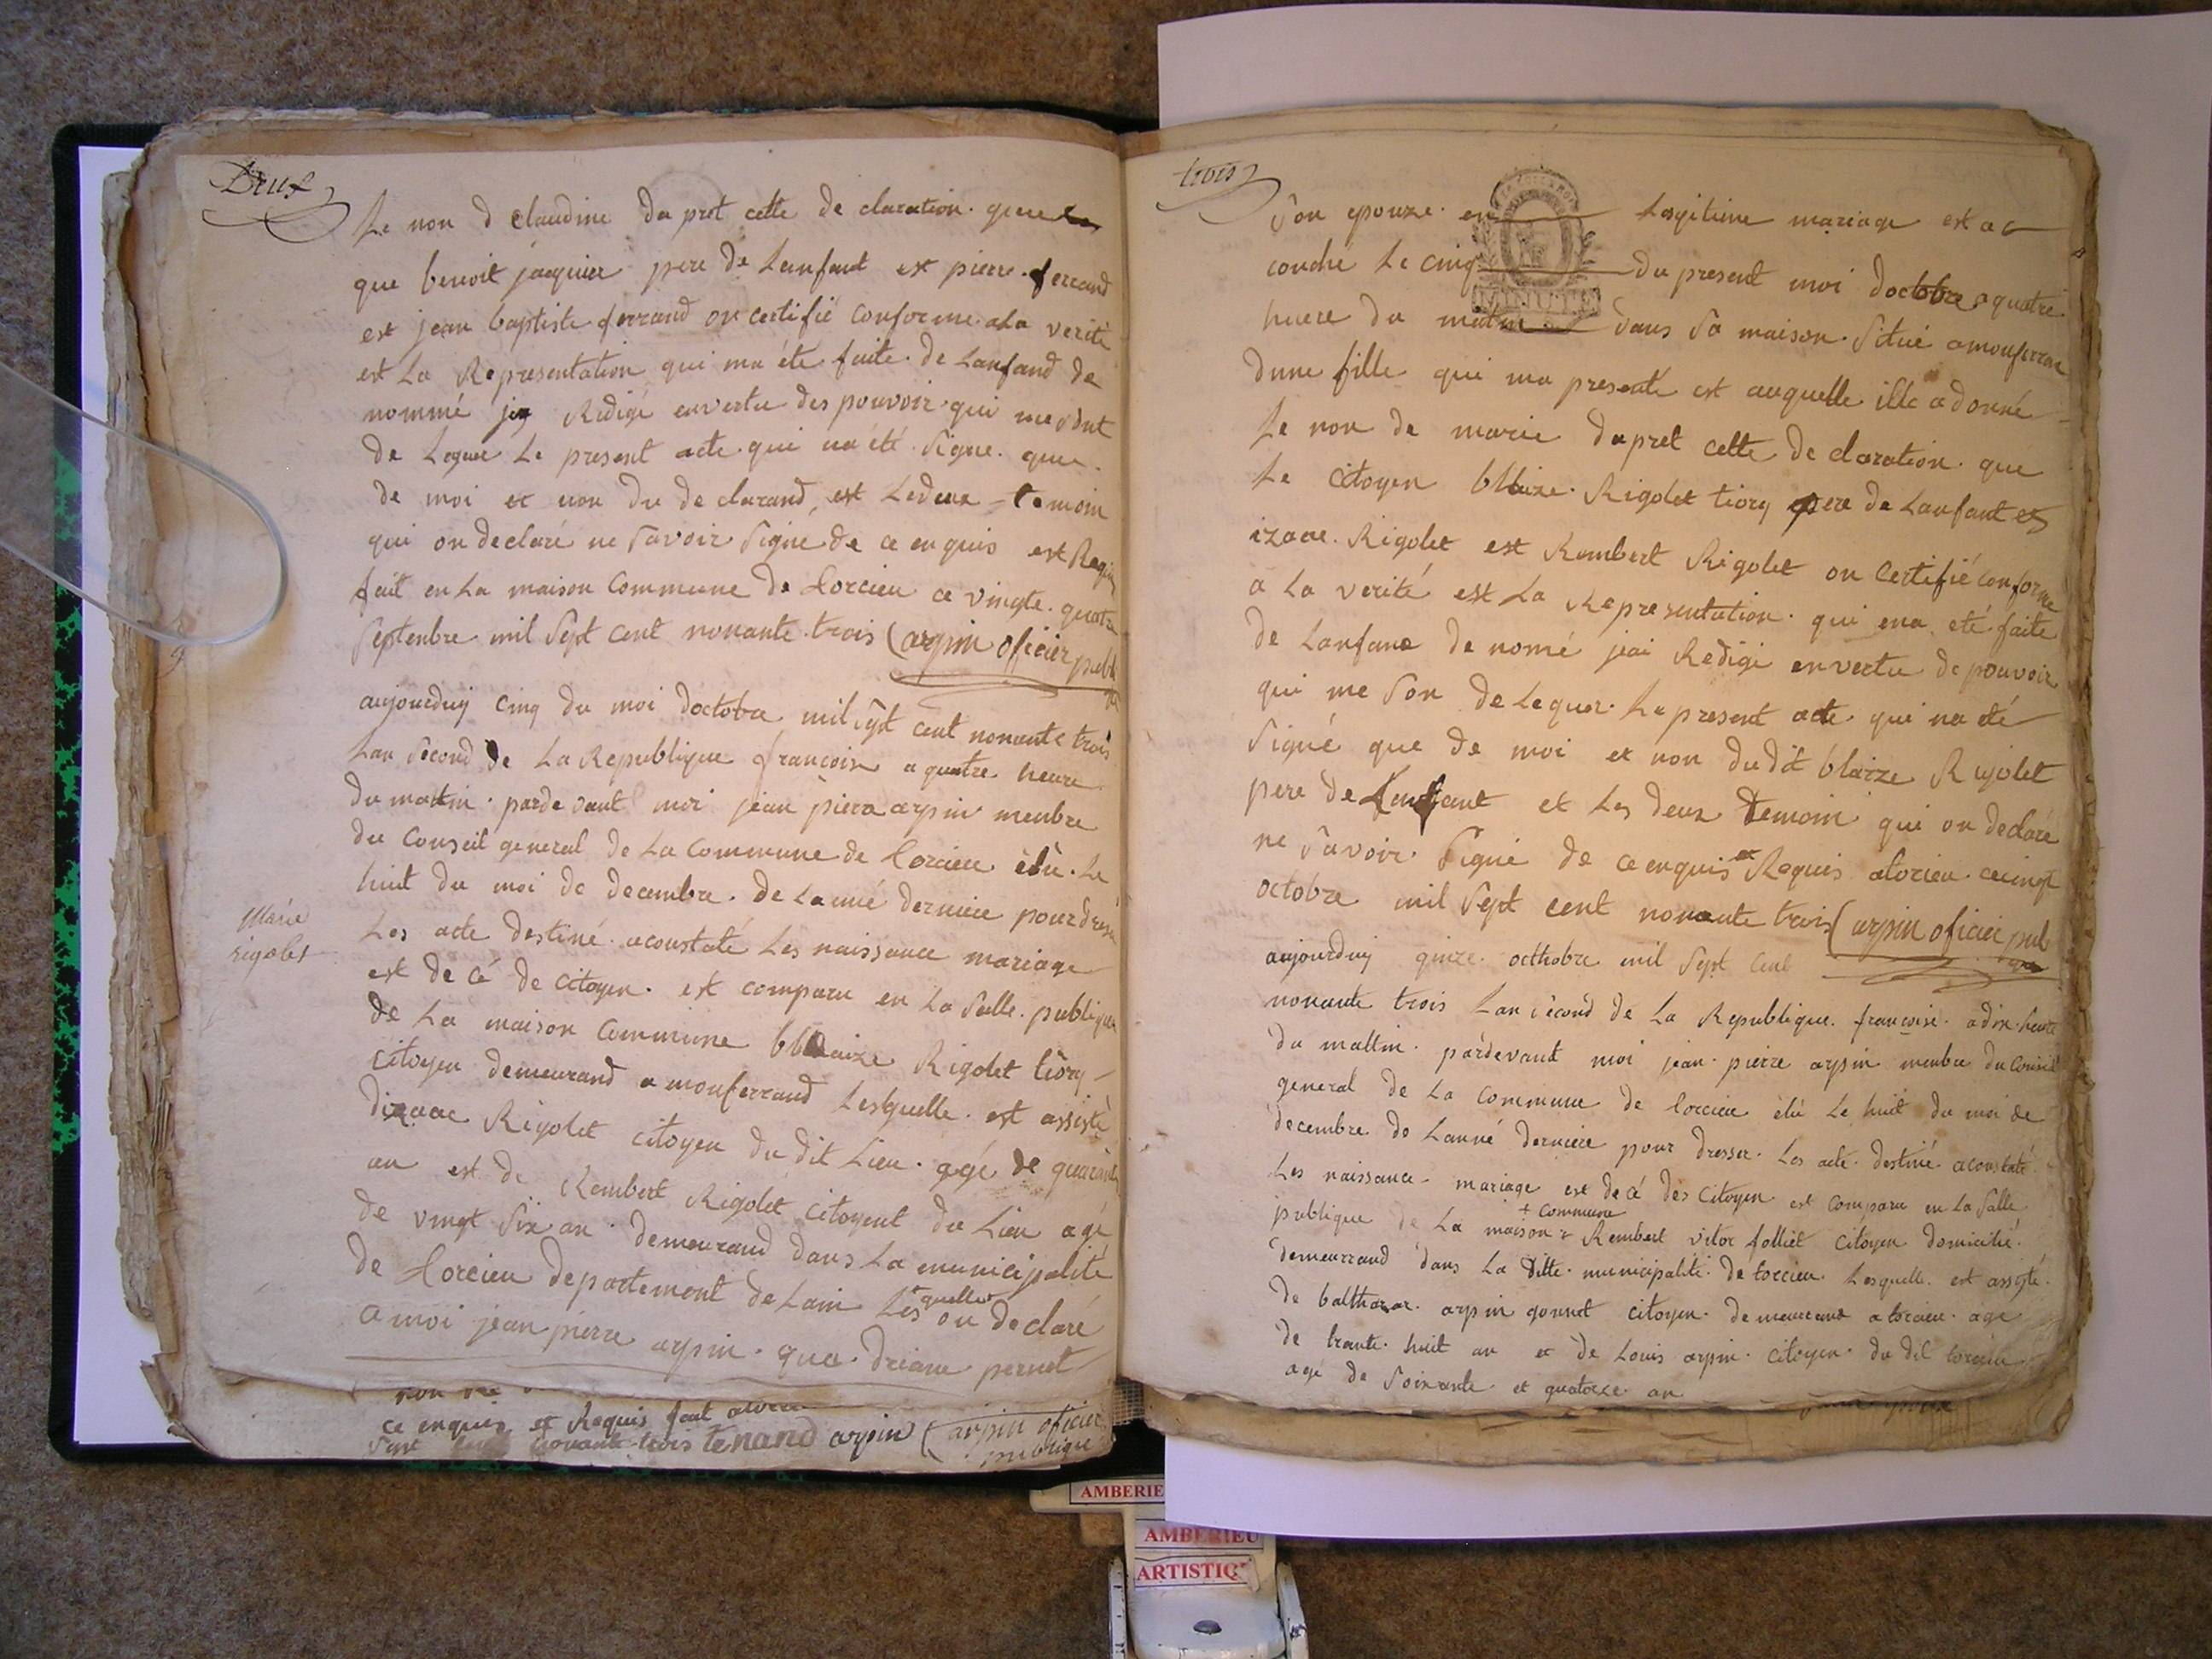 Deux
Le non d Claudine da pret cette de claration. que
que benoit jacquier pere de Lenfant est pierre ferrand
est jean baptiste ferrand on certifié conforme a La verité
est La Representation qui ma éte faite de Lanfand de
nommé jey Redigé envertu des pouvoir qui me sont
de Legue Le present acte qui na été signe que
de moi et non du de clarand, est Ledeux temoin
qui on declaré ne savoir signé de ce enquis est Requi
fait en La maison Commune de torcieu ce vingte quatre
septenbre mil sept cent nonante trois (arpin oficier publ
aujourduy cinq du moi doctobre mil sept cent nonante trois
Lan second de La Republique francoise a quatre heure
du mattin parde vant moi jean piere arpin menbre
du Conseil general de La Commune de torcieu élu Le
huit du moi de decembre de Lanné derniere pour dresé
Marie
rigolet
Les acte destiné aconstaté Les naissance mariage
est de cé de citoyen est comparu en La salle publique
de La maison Commune bblaize Rigolet tiory
Citoyen demeurand a monferrand Lesquelle est assisté
dizaac Rigolet citoyen du dit Lieu agé de quarante
an est de Rembert Rigolet citoyent du Lieu agé
de vingt six an demeurand dans La municipalité
de torcieu departement de Lain Les quelles on declaré
a moi jean pierre arpin que driane pernet
ce enquis et Requis fait
sept cent nonante trois tenand arpin (arpin oficier
publique
trois
son epouze en Legitime mariage est ac
couché Le cinq du present moi doctobre a quatre
MINUTE
heure du matin dans sa maison situé a monferran
dune fille qui ma presenté est auquelle ille a donné
Le non de marie dapret cette de claration que
Le citoyen bllaize Rigolet tiory pere de Lanfant et
izaac Rigolet est Rembert Rigolet on Certifié conforme
a La verité est La Representation qui ma eté faite
de Lanfant de nomé jeai Redigé envertu de pouvoir
qui me son de Leguer Le present acte qui na eté
signé que de moi et non dudit blaize Rigolet
pere de Lanfant et Les deux temoin qui on declaré
ne savoir signé de ce enquis et Requis atorcieu ce cinqt
octobre mil sept cent nonante trois (arpin oficier pub
aujourduy quize octhobre mil sept cent
nonante trois Lan second de La Republique francoise a dix heure
du mattin pardevant moi jean pierre arpin menbre du Conseil
general de La Commune de torcieu élu Le huit du moi de
decembre de Lanné derniere pour dresser Les acte destiné aconstaté
Les naissance mariage est de cé des citoyen est comparu en La salle
+ commune
publique de La maison + Rembert vitor folliet citoyen domicilié
demeurrand dans La ditte municipalité de torcieu Lesquelle est assisté
de balthazar arpin gonnet citoyen demeurant a torcieu age
de trante huit an et de Louis arpin citoyen du dit torcieu
agé de soixante et quatorze an
AMBERIE
AMBERIEU
ARTISTIQ